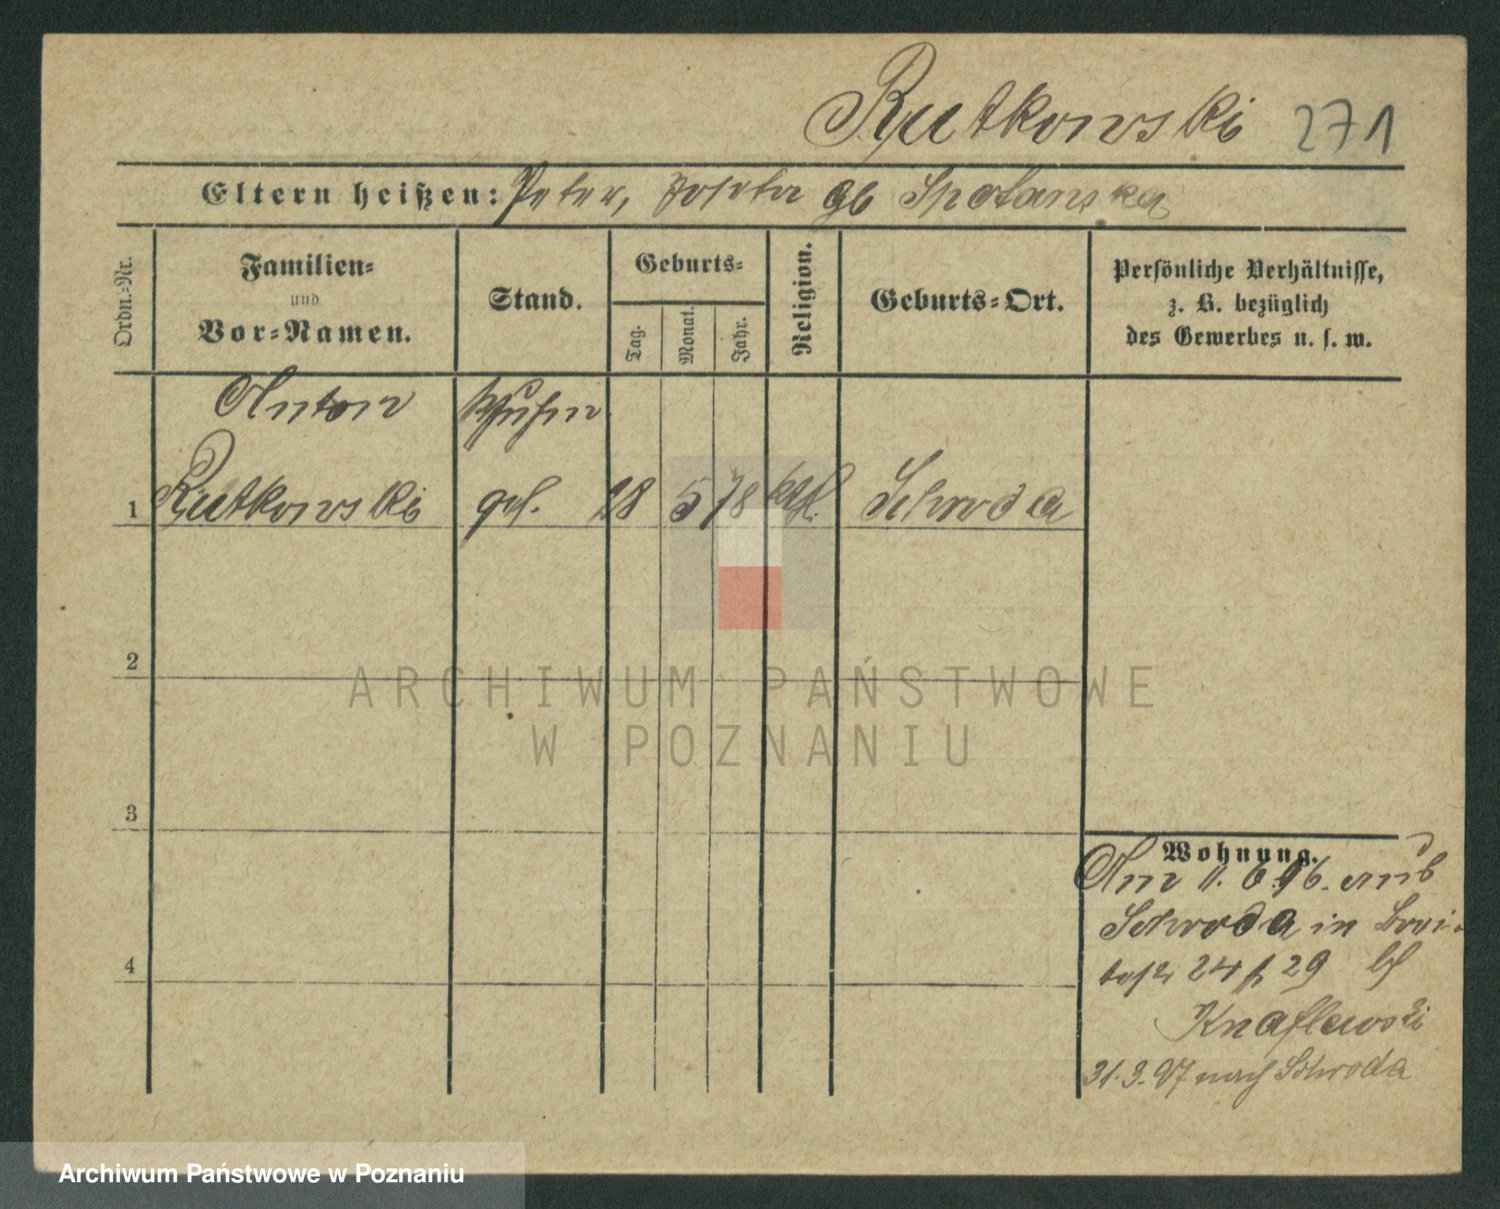 Rutkowski 271
Eltern heißen: Peter, Josefa gb Spotanska
Ordn.-Nr.
Familien-
und
Vor-Namen.
Stand.
Geburts-
Tag.
Monat.
Jahr.
Religion.
Geburts-Ort.
Persönliche Verhältnisse,
z. B. bezüglich
des Gewerbes u. s. w.
Anton
1 Rutkowski 18 5 78 ktl. Schroda
2
3
4
Wohnung.
Am 11. 6. 96. aus
Schroda in Brei-
testr 24 / 29 bei
Knaflewski
31. 3. 97 nach Schroda
ARCHIWUM PAŃSTWOWE
W POZNANIU
Archiwum Państwowe w Poznaniu